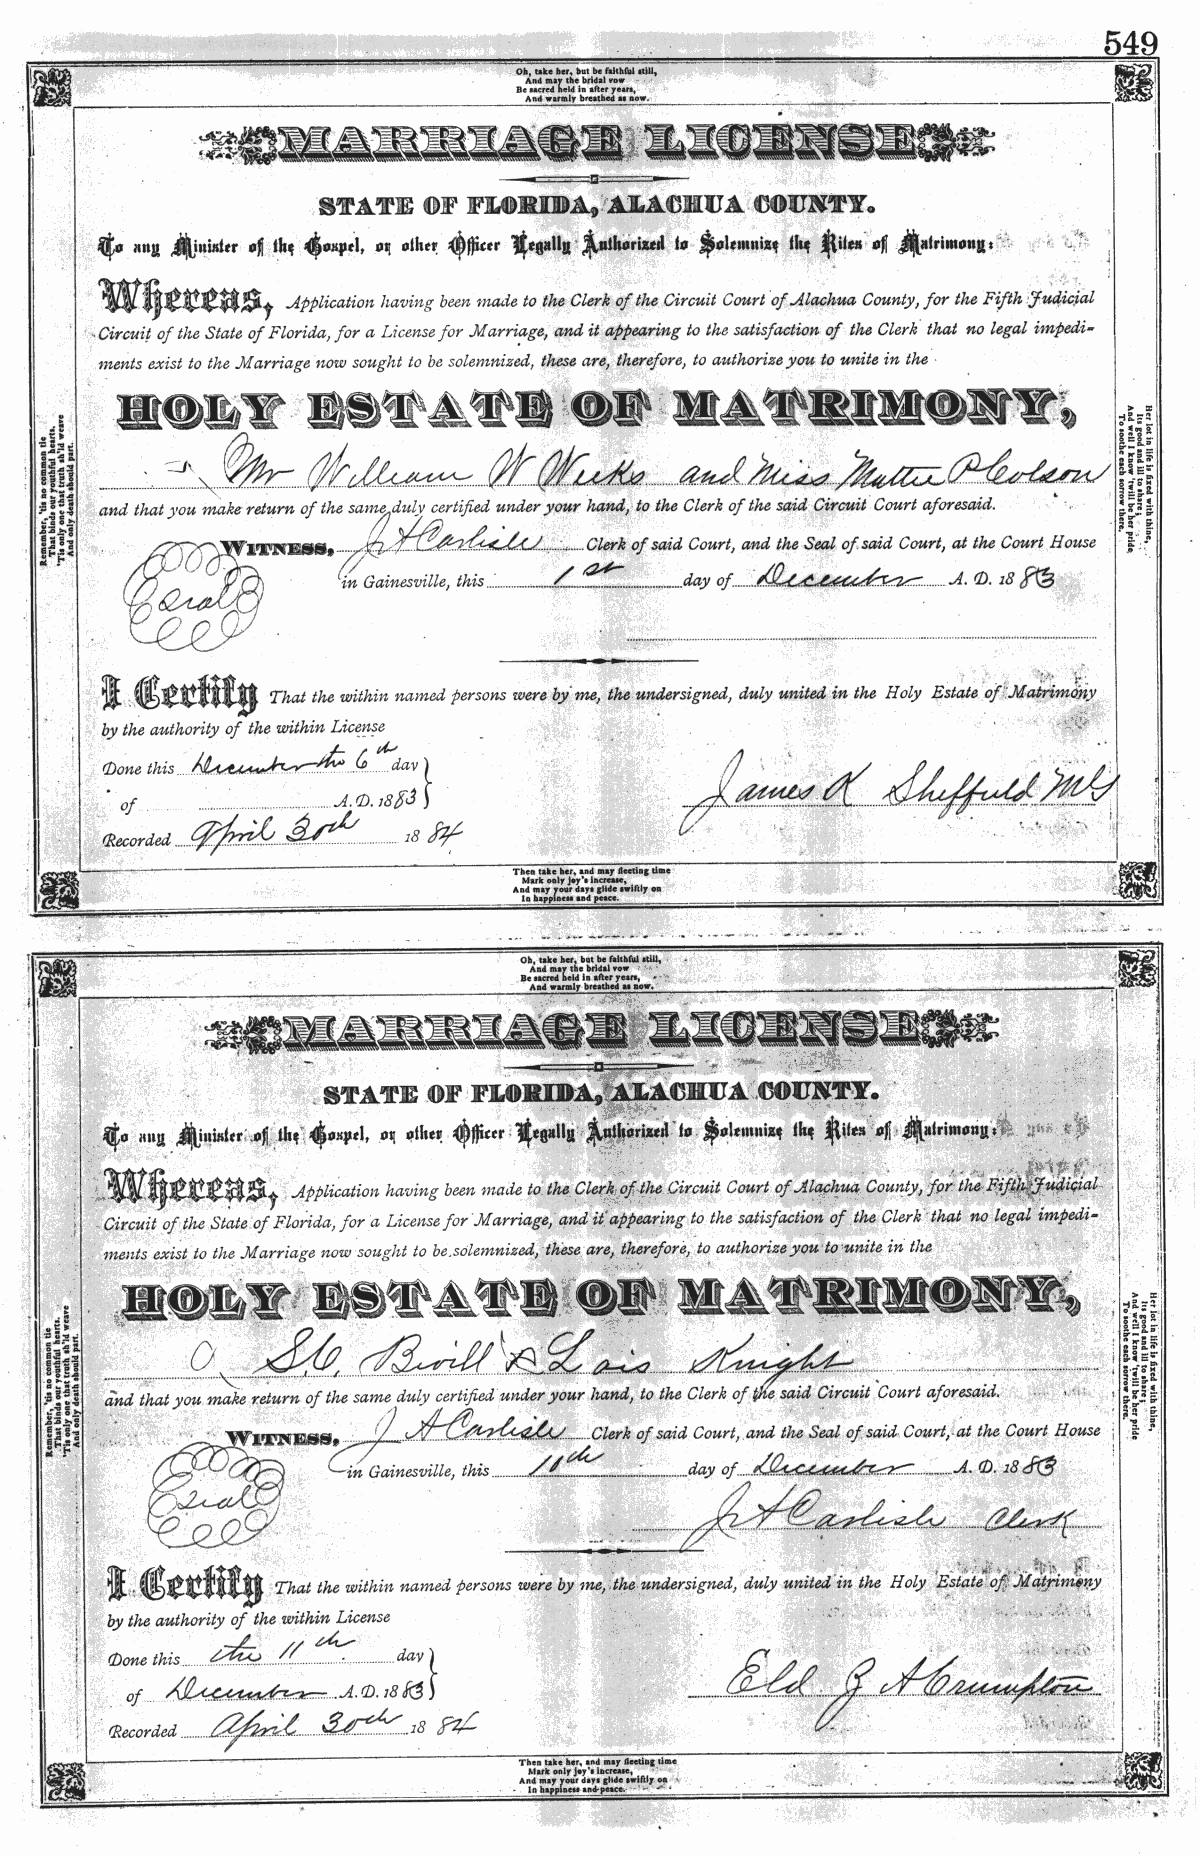 549
Oh, take her, but be faithful still,
And may the bridal vow
Be sacred held in after years,
And warmly breathed as now.
MARRIAGE LICENSE
STATE OF FLORIDA, ALACHUA COUNTY.
To any Minister of the Gospel, or other Officer Legally Authorized to Solemnize the Rites of Matrimony:
Whereas, Application having been made to the Clerk of the Circuit Court of Alachua County, for the Fifth Judicial
Circuit of the State of Florida, for a License for Marriage, and it appearing to the satisfaction of the Clerk that no legal impedi-
ments exist to the Marriage now sought to be solemnized, these are, therefore, to authorize you to unite in the
HOLY ESTATE OF MATRIMONY,
Mr William W Weeks and Miss Mattie P Colson
and that you make return of the same duly certified under your hand, to the Clerk of the said Circuit Court aforesaid.
WITNESS, J A Carlisle Clerk of said Court, and the Seal of said Court, at the Court House
Seal
in Gainesville, this 1st day of December A. D. 1883
I Certify That the within named persons were by me, the undersigned, duly united in the Holy Estate of Matrimony
by the authority of the within License
Done this December the 6th day
of A.D. 1883
James K Sheffield MG
Recorded April 30th 1884
Remember, 'tis no common tie
That binds our youthful hearts.
'Tis only one that truth sh'ld weave
And only death should part.
Her lot in life is fixed with thine,
Its good and ill to share;
And well I know 'twill be her pride
To soothe each sorrow there.
Then take her, and may fleeting time
Mark only joy's increase,
And may your days glide swiftly on
In happiness and peace.
Oh, take her, but be faithful still,
And may the bridal vow
Be sacred held in after years,
And warmly breathed as now.
MARRIAGE LICENSE
STATE OF FLORIDA, ALACHUA COUNTY.
To any Minister of the Gospel, or other Officer Legally Authorized to Solemnize the Rites of Matrimony:
Whereas, Application having been made to the Clerk of the Circuit Court of Alachua County, for the Fifth Judicial
Circuit of the State of Florida, for a License for Marriage, and it appearing to the satisfaction of the Clerk that no legal impedi-
ments exist to the Marriage now sought to be solemnized, these are, therefore, to authorize you to unite in the
HOLY ESTATE OF MATRIMONY,
S. C. Bevill & Lois Knight
and that you make return of the same duly certified under your hand, to the Clerk of the said Circuit Court aforesaid.
WITNESS, J A Carlisle Clerk of said Court, and the Seal of said Court, at the Court House
Seal
in Gainesville, this 10th day of December A. D. 1883
J A Carlisle Clerk
I Certify That the within named persons were by me, the undersigned, duly united in the Holy Estate of Matrimony
by the authority of the within License
Done this the 11th day
of December A.D. 1883
Eld J A Crumpton
Recorded April 30th 1884
Remember, 'tis no common tie
That binds our youthful hearts.
'Tis only one that truth sh'ld weave
And only death should part.
Her lot in life is fixed with thine,
Its good and ill to share;
And well I know 'twill be her pride
To soothe each sorrow there.
Then take her, and may fleeting time
Mark only joy's increase,
And may your days glide swiftly on
In happiness and peace.